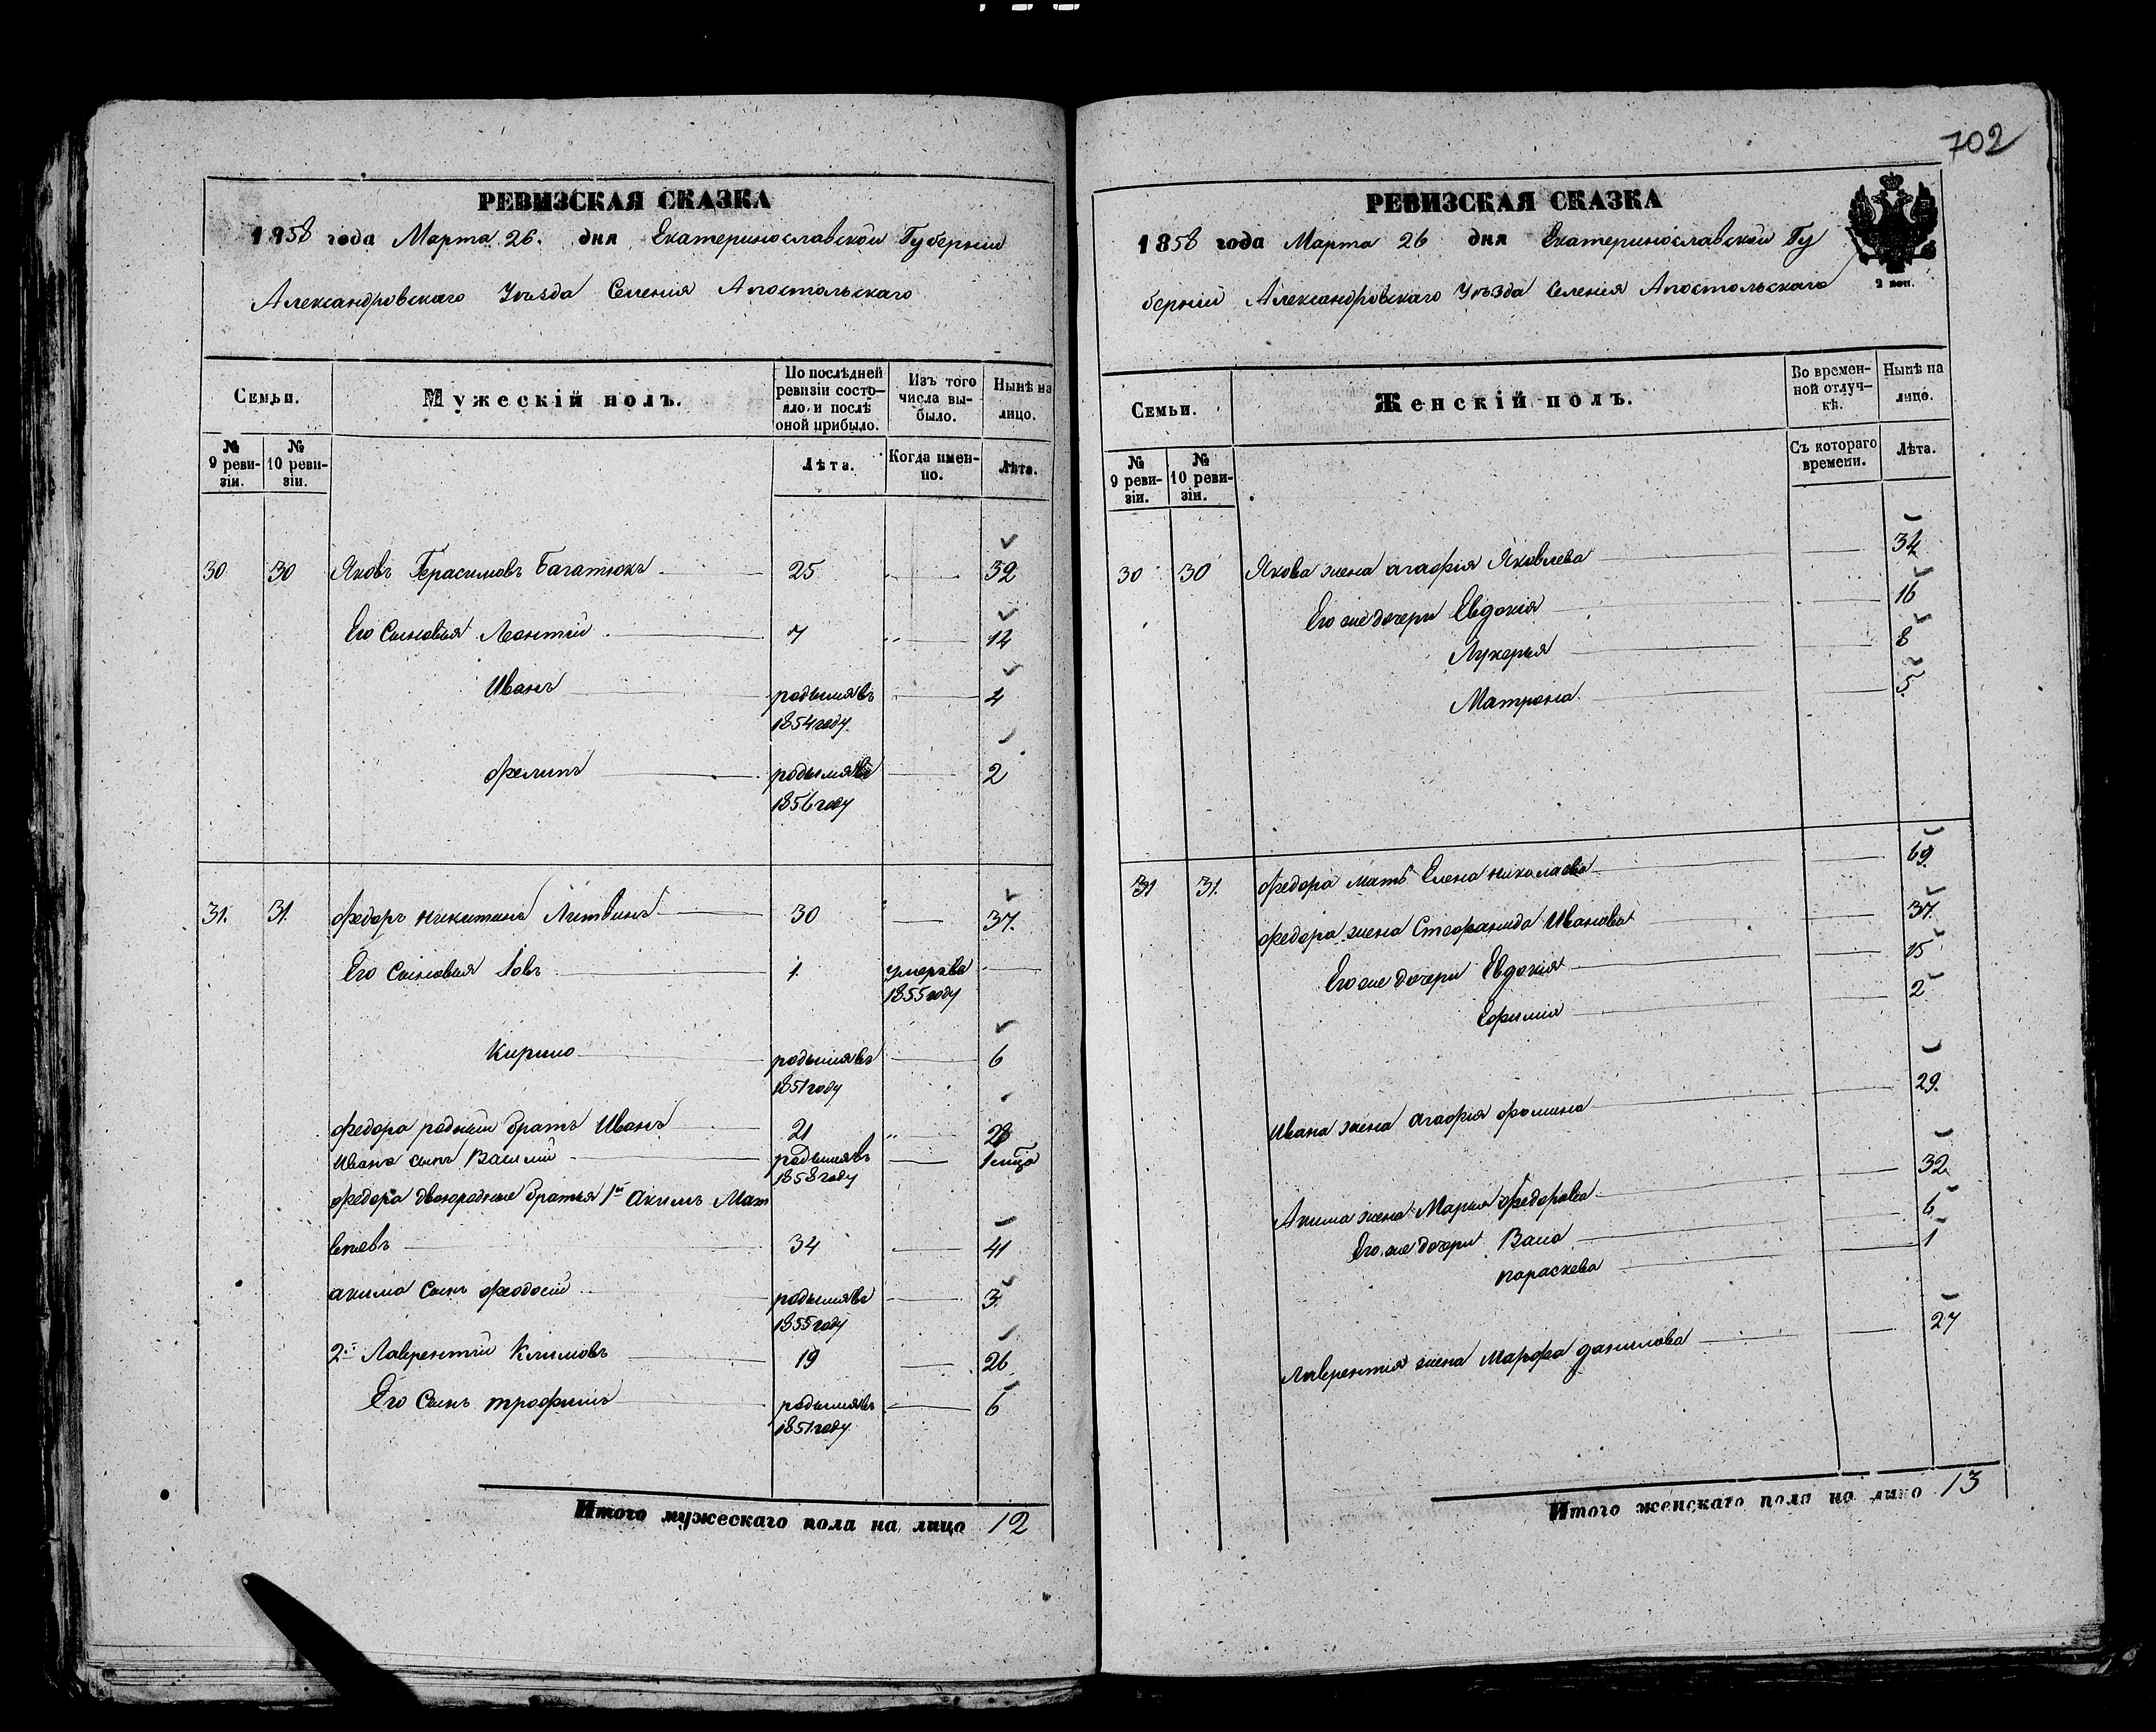 702
РЕВИЗСКАЯ СКАЗКА
1858 года Марта 26. дня Екатеринославской Губерніи
Александровскаго Уѣзда Селенія Апостольскаго
Семьи.
Мужескій полъ.
По послѣдней ревизіи состояло, и послѣ оной прибыло.
Изъ того числа выбыло.
Нынѣ на лицо.
№ 9 ревизіи.
№ 10 ревизіи.
Лѣта.
Когда именно.
Лѣта.
30 30 Яковъ Герасимовъ Багатюкъ 25 32
Его Сыновья Леонтій 7 14
Иванъ родился въ 1854 году. 4
Филипъ родился въ 1856 году 2
31. 31. Федоръ Никитинъ Литвинъ 30 37.
Его Сыновья Іовъ 1. умеръ въ 1855 году
Кирило родился въ 1851 году 6
Федора родный братъ Иванъ 21 28
Ивана сынъ Василій родился въ 1858 году
Федора двоюродные братья 1й Акимъ Мат
веевъ 34 41
Акима Сынъ Феодосій родился въ 1855 году 3.
2й Лаврентій Климовъ 19 26
Его Сынъ трофимъ родился въ 1851 году. 6
Итого мужескаго пола на лицо 12
РЕВИЗСКАЯ СКАЗКА
1858 года Марта 26 дня Екатеринославской Гу
берніи Александровскаго Уѣзда Селенія Апостольскаго
2 коп.
Семьи.
Женскій полъ.
Во временной отлучкѣ.
Нынѣ на лицо.
№ 9 ревизіи.
№ 10 ревизіи.
Съ котораго времени.
Лѣта.
30 30 Якова жена агафія Яковлева 34
Его же дочери Евдокія 16
Лукерья 8
Матрона 5.
31 31. Федора мать Елена николаева 69.
Федора жена Стефанида Иванова 37.
Его же дочери Евдокія 15
Ефимія 2
Ивана жена агафія фомина 29.
Акима жена Марья Федорова 32
Его же дочери Васа 6
параскева 1
Лаврентія жена Марфа данилова 27
Итого женскаго пола на лицо 13